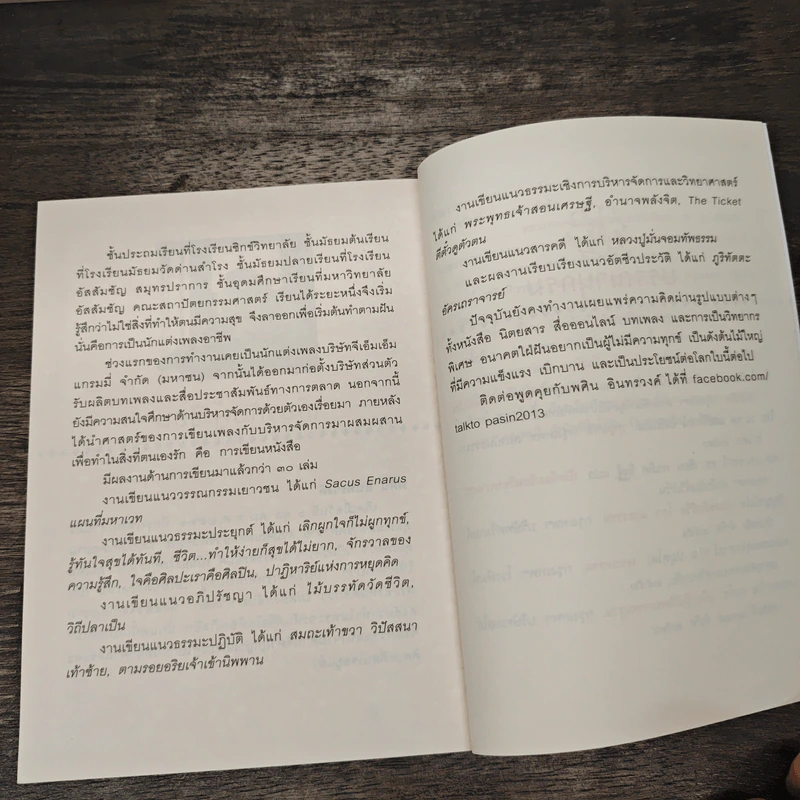 ชั้นประถมเรียนที่โรงเรียนซิกข์วิทยาลัย ชั้นมัธยมต้นเรียน
ที่โรงเรียนมัธยมวัดด่านสำโรง ชั้นมัธยมปลายเรียนที่โรงเรียน
อัสสัมชัญ สมุทรปราการ ชั้นอุดมศึกษาเรียนที่มหาวิทยาลัย
อัสสัมชัญ คณะสถาปัตยกรรมศาสตร์ เรียนได้ระยะหนึ่งจึงเริ่ม
รู้สึกว่าไม่ใช่สิ่งที่ทำให้ตนมีความสุข จึงลาออกเพื่อเริ่มต้นทำตามฝัน
นั่นคือการเป็นนักแต่งเพลงอาชีพ
ช่วงแรกของการทำงานเคยเป็นนักแต่งเพลงบริษัทจีเอ็มเอ็ม
แกรมมี่ จำกัด (มหาชน) จากนั้นได้ออกมาก่อตั้งบริษัทส่วนตัว
รับผลิตบทเพลงและสื่อประชาสัมพันธ์ทางการตลาด นอกจากนี้
ยังมีความสนใจศึกษาด้านบริหารจัดการด้วยตัวเองเรื่อยมา ภายหลัง
ได้นำศาสตร์ของการเขียนเพลงกับบริหารจัดการมาผสมผสาน
เพื่อทำในสิ่งที่ตนเองรัก คือ การเขียนหนังสือ
มีผลงานด้านการเขียนมาแล้วกว่า ๓๐ เล่ม
งานเขียนแนววรรณกรรมเยาวชน ได้แก่ Sacus Enarus
แผนที่มหาเวท
งานเขียนแนวธรรมะประยุกต์ ได้แก่ เลิกผูกใจก็ไม่ผูกทุกข์,
รู้ทันใจสุขได้ทันที, ชีวิต...ทำให้ง่ายก็สุขได้ไม่ยาก, จักรวาลของ
ความรู้สึก, ใจคือศิลปะเราคือศิลปิน, ปาฏิหาริย์แห่งการหยุดคิด
งานเขียนแนวอภิปรัชญา ได้แก่ ไม้บรรทัดวัดชีวิต,
วิถีปลาเป็น
งานเขียนแนวธรรมะปฏิบัติ ได้แก่ สมถะเท้าขวา วิปัสสนา
เท้าซ้าย, ตามรอยอริยเจ้าเข้านิพพาน
งานเขียนแนวธรรมะเชิงการบริหารจัดการและวิทยาศาสตร์
ได้แก่ พระพุทธเจ้าสอนเศรษฐี, อำนาจพลังจิต, The Ticket
ตีตั๋วดูตัวตน
งานเขียนแนวสารคดี ได้แก่ หลวงปู่มั่นจอมทัพธรรม
และผลงานเรียบเรียงแนวอัตชีวประวัติ ได้แก่ ภูริทัตตะ
อัครเถราจารย์
ปัจจุบันยังคงทำงานเผยแพร่ความคิดผ่านรูปแบบต่างๆ
ทั้งหนังสือ นิตยสาร สื่อออนไลน์ บทเพลง และการเป็นวิทยากร
พิเศษ อนาคตใฝ่ฝันอยากเป็นผู้ไม่มีความทุกข์ เป็นดังต้นไม้ใหญ่
ที่มีความแข็งแรง เบิกบาน และเป็นประโยชน์ต่อโลกใบนี้ต่อไป
ติดต่อพูดคุยกับพศิน อินทรวงค์ ได้ที่ facebook.com/
talkto pasin2013